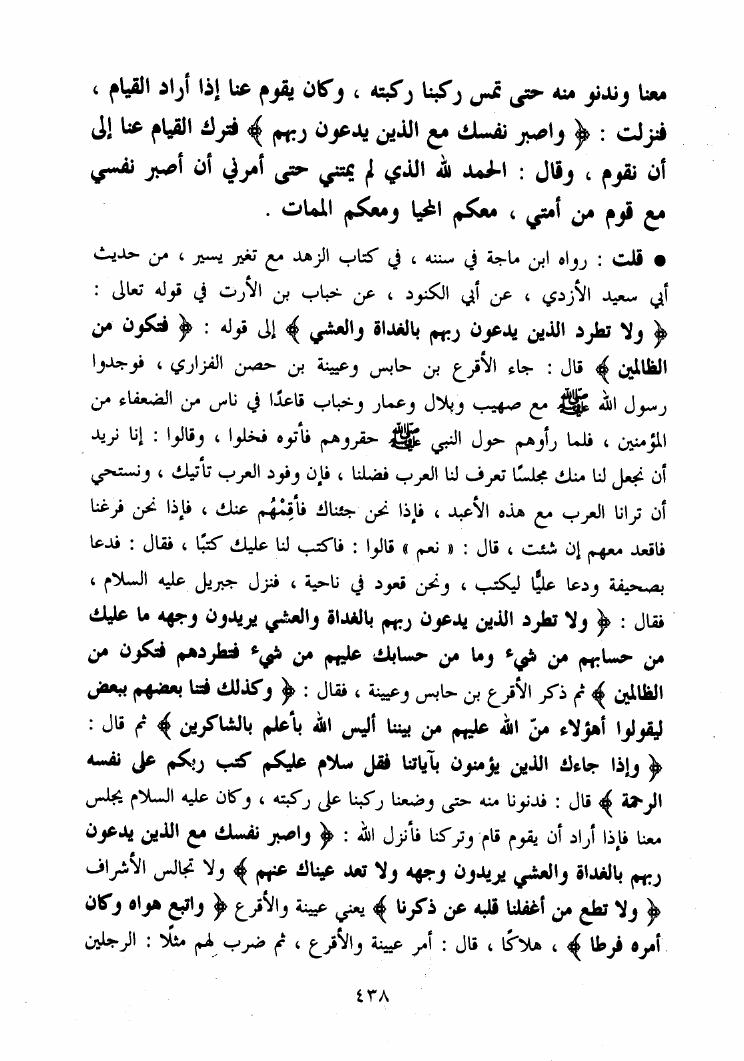 معنا وندنو منه حتى تمس ركبنا ركبته ، وكان يقوم عنا إذا أراد القيام ،
فنزلت : ﴿ واصبر نفسك مع الذين يدعون ربهم ﴾ فترك القيام عنا إلى
أن نقوم ، وقال : الحمد لله الذي لم يمتني حتى أمرني أن أصبر نفسي
مع قوم من أمتي ، معكم المحيا ومعكم الممات .
● قلت : رواه ابن ماجة في سننه ، في كتاب الزهد مع تغير يسير ، من حديث
أبي سعيد الأزدي ، عن أبي الكنود ، عن خباب بن الأرت في قوله تعالى :
﴿ ولا تطرد الذين يدعون ربهم بالغداة والعشي ﴾ إلى قوله : ﴿ فتكون من
الظالمين ﴾ قال : جاء الأقرع بن حابس وعيينة بن حصن الفزاري ، فوجدوا
رسول الله ﷺ مع صهيب وبلال وعمار وخباب قاعدًا في ناس من الضعفاء من
المؤمنين ، فلما رأوهم حول النبي ﷺ حقروهم فأتوه فخلوا ، وقالوا : إنا نريد
أن نجعل لنا منك مجلسًا تعرف لنا العرب فضلنا ، فإن وفود العرب تأتيك ، ونستحي
أن ترانا العرب مع هذه الأعبد ، فإذا نحن جئناك فأقِمْهُم عنك ، فإذا نحن فرغنا
فاقعد معهم إن شئت ، قال : « نعم » قالوا : فاكتب لنا عليك كتبًا ، فقال : فدعا
بصحيفة ودعا عليًّا ليكتب ، ونحن قعود في ناحية ، فنزل جبريل عليه السلام ،
فقال : ﴿ ولا تطرد الذين يدعون ربهم بالغداة والعشي يريدون وجهه ما عليك
من حسابهم من شيء وما من حسابك عليهم من شيء فتطردهم فتكون من
الظالمين ﴾ ثم ذكر الأقرع بن حابس وعيينة ، فقال : ﴿ وكذلك فتنا بعضهم ببعض
ليقولوا أهؤلاء منّ الله عليهم من بيننا أليس الله بأعلم بالشاكرين ﴾ ثم قال :
﴿ وإذا جاءك الذين يؤمنون بآياتنا فقل سلام عليكم كتب ربكم على نفسه
الرحمة ﴾ قال : فدنونا منه حتى وضعنا ركبنا على ركبته ، وكان عليه السلام يجلس
معنا فإذا أراد أن يقوم قام وتركنا فأنزل الله : ﴿ واصبر نفسك مع الذين يدعون
ربهم بالغداة والعشي يريدون وجهه ولا تعد عيناك عنهم ﴾ ولا تجالس الأشراف
﴿ ولا تطع من أغفلنا قلبه عن ذكرنا ﴾ يعني عيينة والأقرع ﴿ واتبع هواه وكان
أمره فرطا ﴾ ، هلاكًا ، قال : أمر عيينة والأقرع ، ثم ضرب لهم مثلًا : الرجلين
٤٣٨